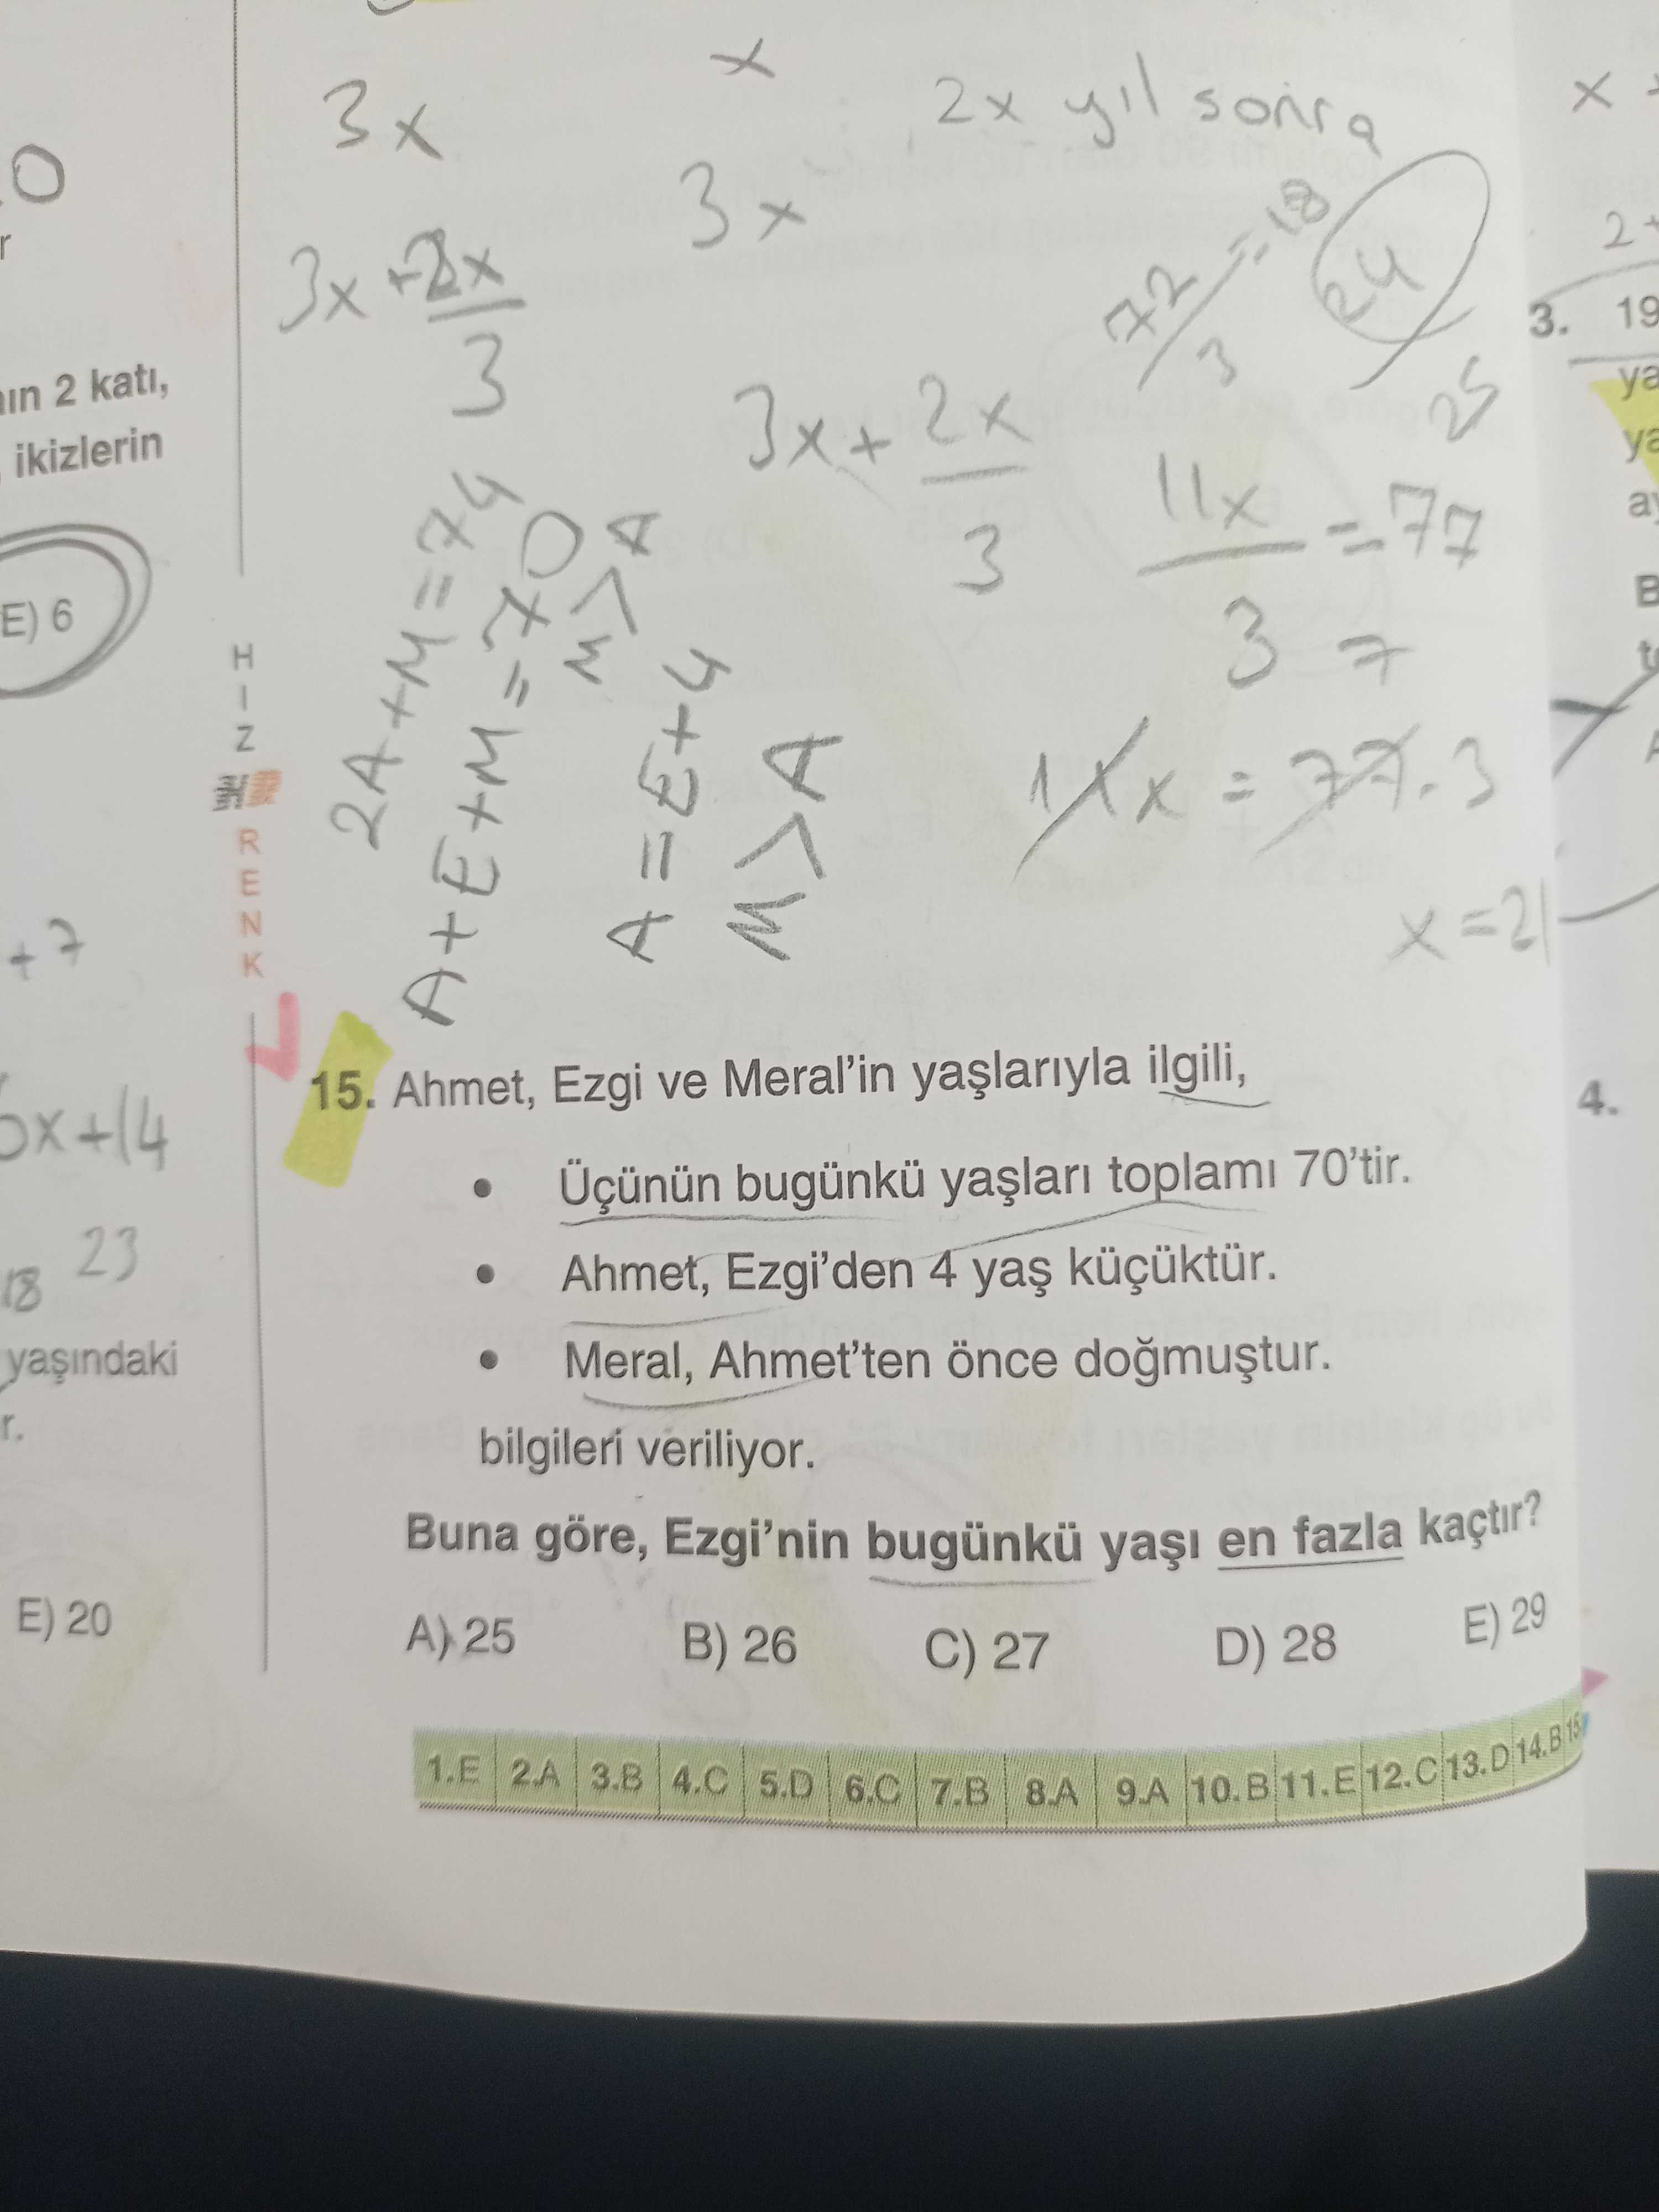 3x
x
2x yıl sonra
3x
3x + 2x
3
72
3
= 18
24
25
3x + 2x
3
11x
3
= 77
7
11x = 77.3
x = 21
2A + M = 74
A + E + M = 70
M > A
A = E + 4
M > A
ın 2 katı,
ikizlerin
E) 6
HIZ
RENK
+ 7
x+14
18 23
yaşındaki
r.
E) 20
15. Ahmet, Ezgi ve Meral'in yaşlarıyla ilgili,
• Üçünün bugünkü yaşları toplamı 70'tir.
• Ahmet, Ezgi'den 4 yaş küçüktür.
• Meral, Ahmet'ten önce doğmuştur.
bilgileri veriliyor.
Buna göre, Ezgi'nin bugünkü yaşı en fazla kaçtır?
A) 25 B) 26 C) 27 D) 28 E) 29
1.E 2.A 3.B 4.C 5.D 6.C 7.B 8.A 9.A 10.B 11.E 12.C 13.D 14.B 15
x
2+
3. 19
ya
ya
B
4.